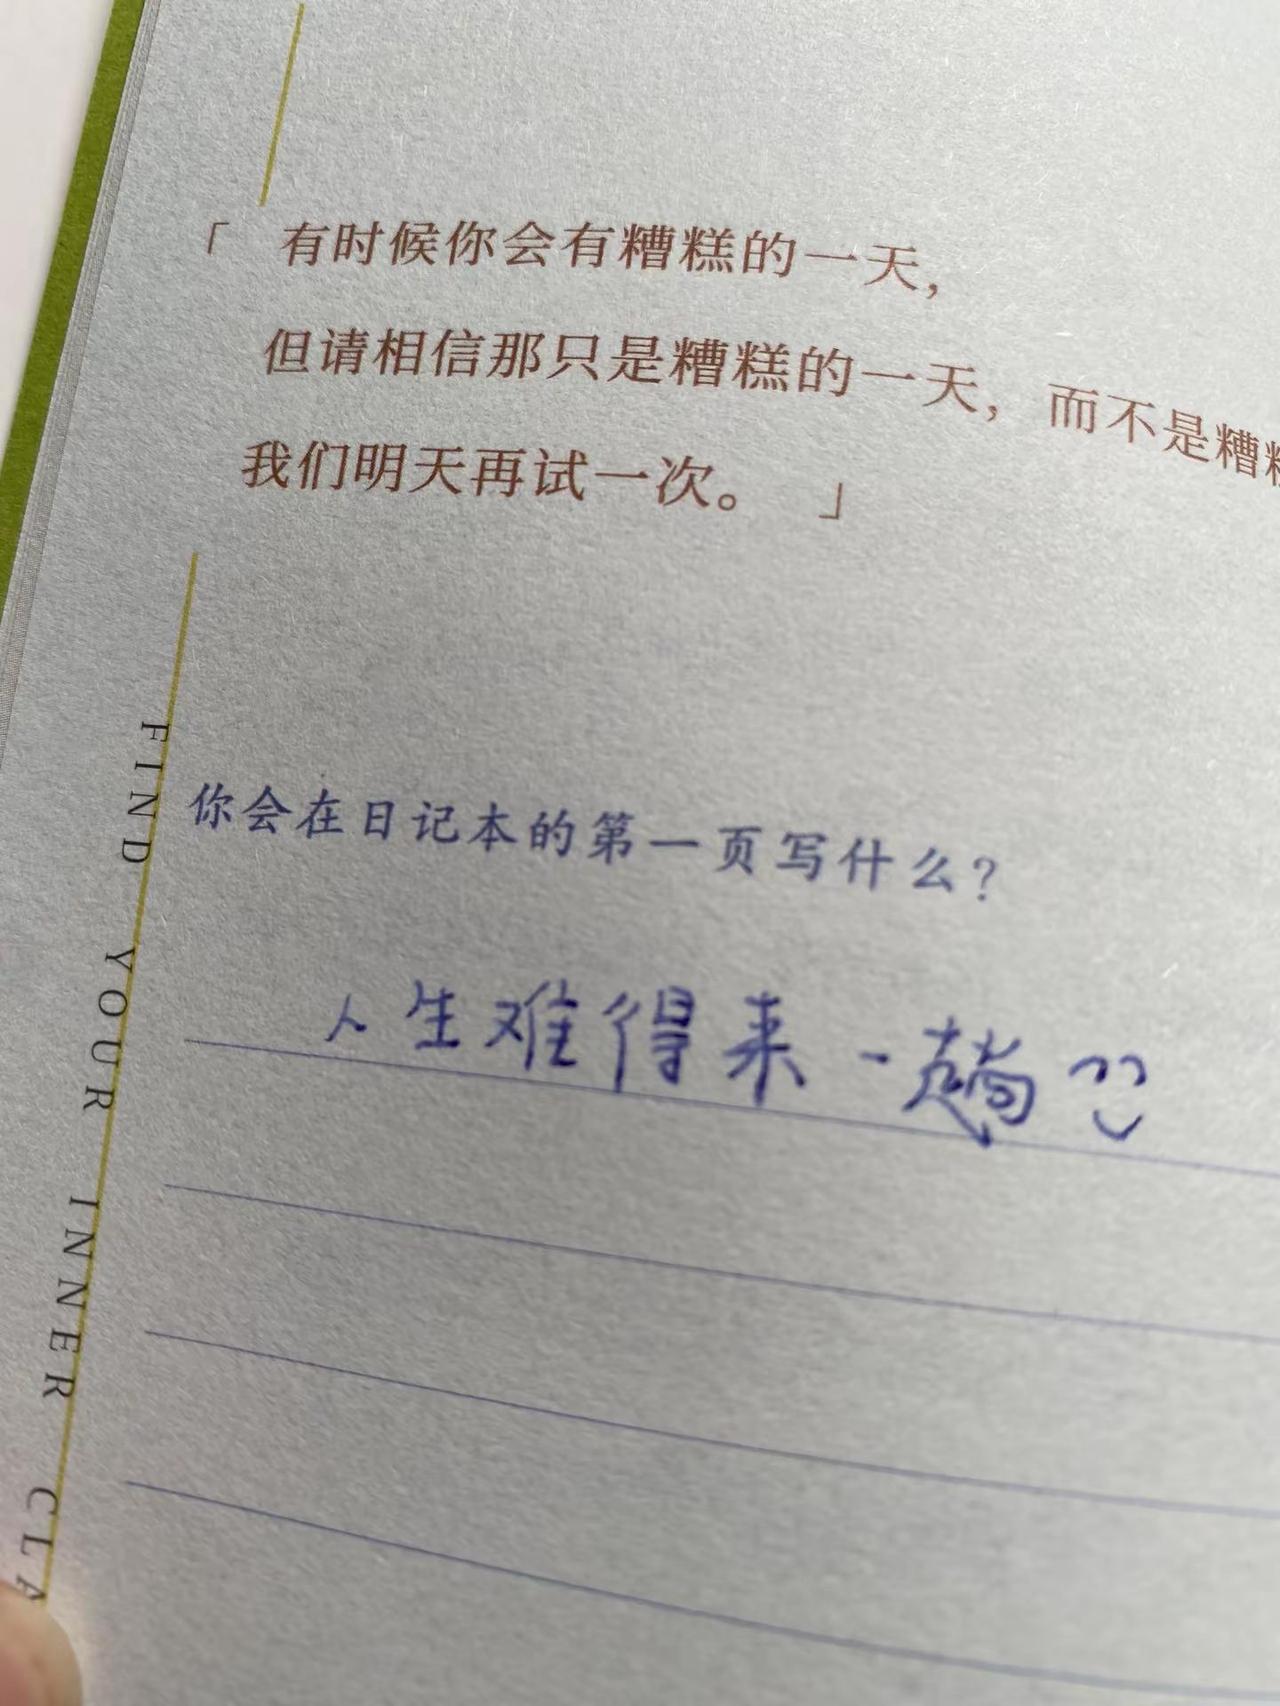 「 有时候你会有糟糕的一天，
但请相信那只是糟糕的一天，而不是糟糕
我们明天再试一次。 」
你会在日记本的第一页写什么？
人生难得来一趟
FIND YOUR INNER CLA